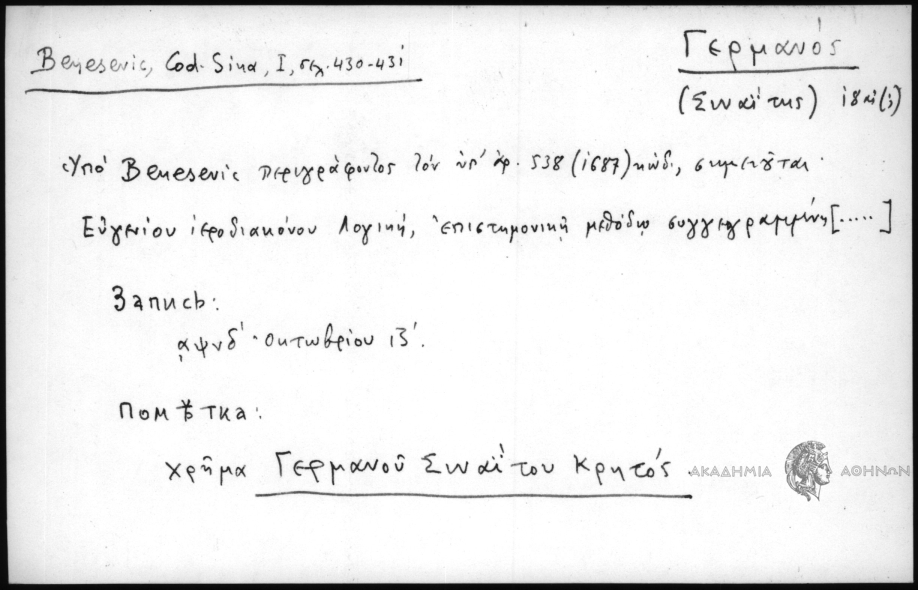 Benesevic, Cod. Sina, I, σελ. 430-431
Γερμανός
(Συναΐτης) ι8 αι(;)
Ὑπό Benesevic περιγράφοντος τόν ὑπ' ἀρ. 538 (1687) κώδ., σημειοῦται·
Εὐγενίου ἱεροδιακόνου Λογική, ἐπιστημονικῇ μεθόδῳ συγγεγραμμένη [.....]
Запись:
αψνδ' · Οκτωβρίου ιβ'.
Помѣтка:
χρῆμα Γερμανοῦ Συναΐτου Κρητός.
ΑΚΑΔΗΜΙΑ ΑΘΗΝΩΝ